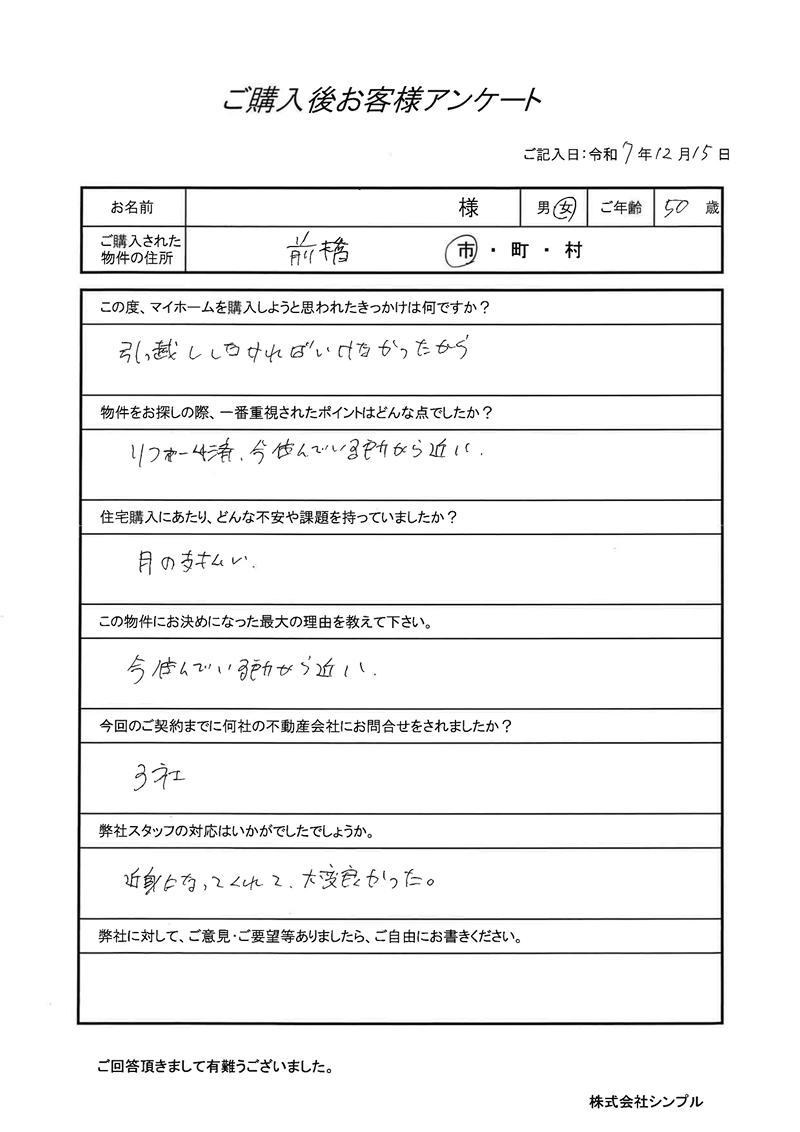 ご購入後お客様アンケート
ご記入日:令和7年12月15日
お名前 様 男 女 ご年齢 50 歳
ご購入された物件の住所 前橋 市・町・村
この度、マイホームを購入しようと思われたきっかけは何ですか?
引っ越ししなければいけなかったから
物件をお探しの際、一番重視されたポイントはどんな点でしたか?
リフォーム済、今住んでいる所から近い.
住宅購入にあたり、どんな不安や課題を持っていましたか?
月の支払い.
この物件にお決めになった最大の理由を教えて下さい。
今住んでいる所から近い.
今回のご契約までに何社の不動産会社にお問合せをされましたか?
3社
弊社スタッフの対応はいかがでしたでしょうか。
近身になってくれて、大変良かった。
弊社に対して、ご意見・ご要望等ありましたら、ご自由にお書きください。
ご回答頂きまして有難うございました。
株式会社シンプル